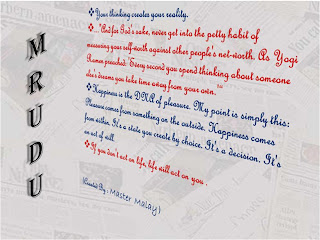 MRUDU
❖Your thinking creates your reality.
❖..."And for God's sake, never get into the petty habit of
measuring your self-worth against other people's net-worth. As Yogi
Raman preached: 'Every second you spend thinking about someone
else's dreams you take time away from your own.'"
❖Happiness is the DNA of pleasure. My point is simply this:
Pleasure comes from something on the outside. Happiness comes
from within. It's a state you create by choice. It's a decision. It's
an act of will.
❖If you don't act on life, life will act on you .
(Created By, Master Malay)